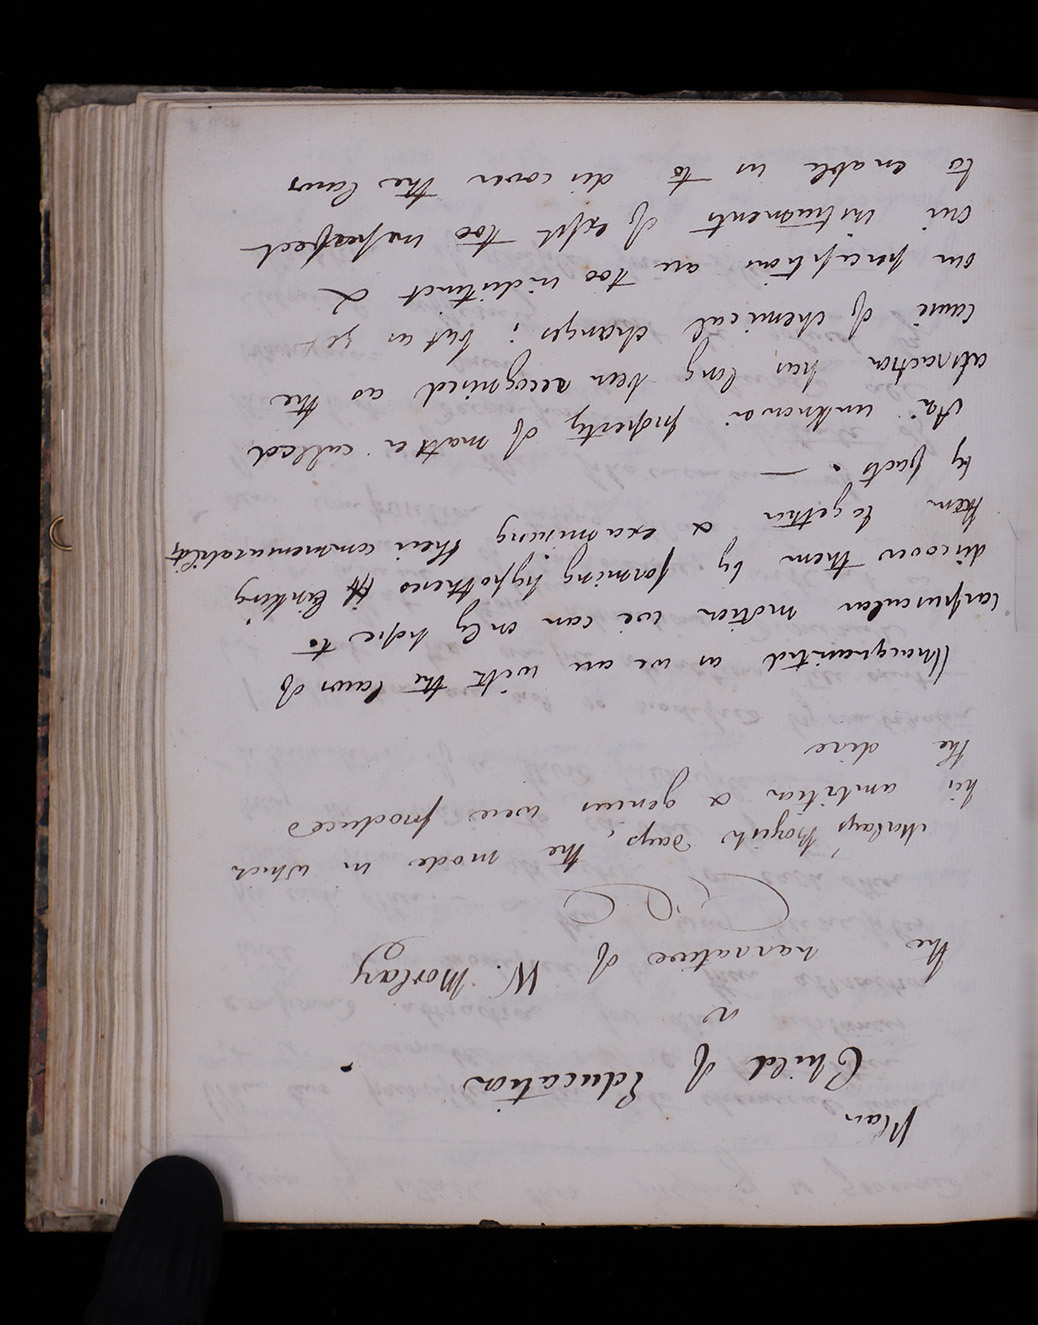 Plan
Child of Education
or
the narrative of W. Morlay
Malays Boyish days, the mode in which
his ambition & genius were produced
the dire
Unacquainted as we are with the laws of
corpuscular motion we can only hope to
discover them by forming hypotheses linking
them together & examining their commensurability
by facts. —
An unknown property of matter called
attraction has long been recognised as the
cause of chemical changes; but as yet
our perceptions are too indistinct &
our instruments of expt too imperfect
to enable us to discover the laws